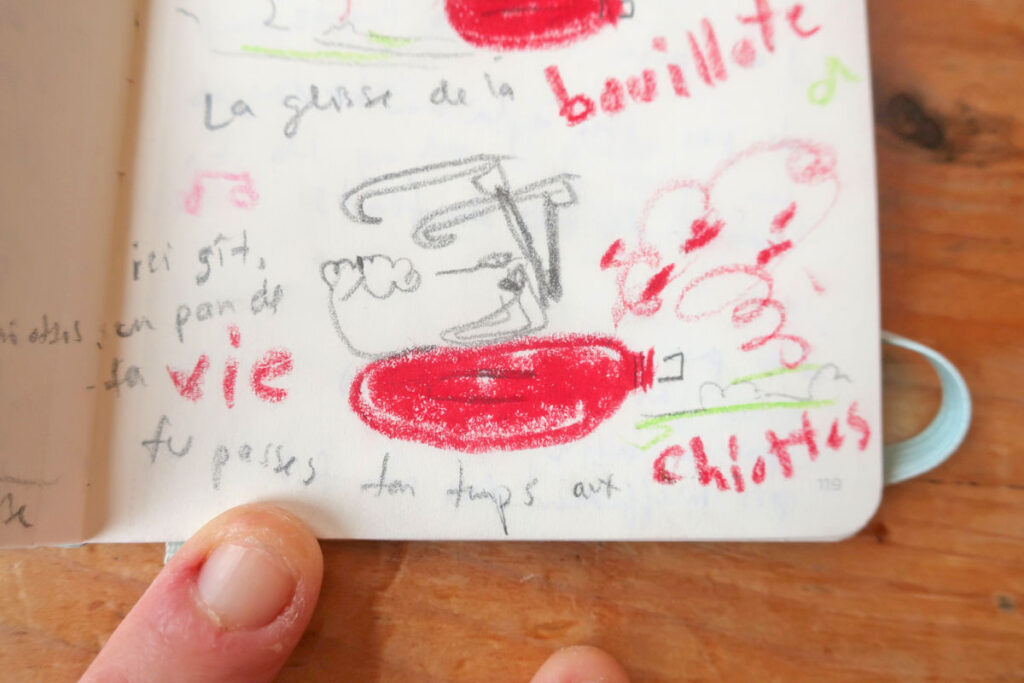 La glisse de la bouillote
ici gît,
un pan de
ta vie
tu passes ton temps aux chiottes
119